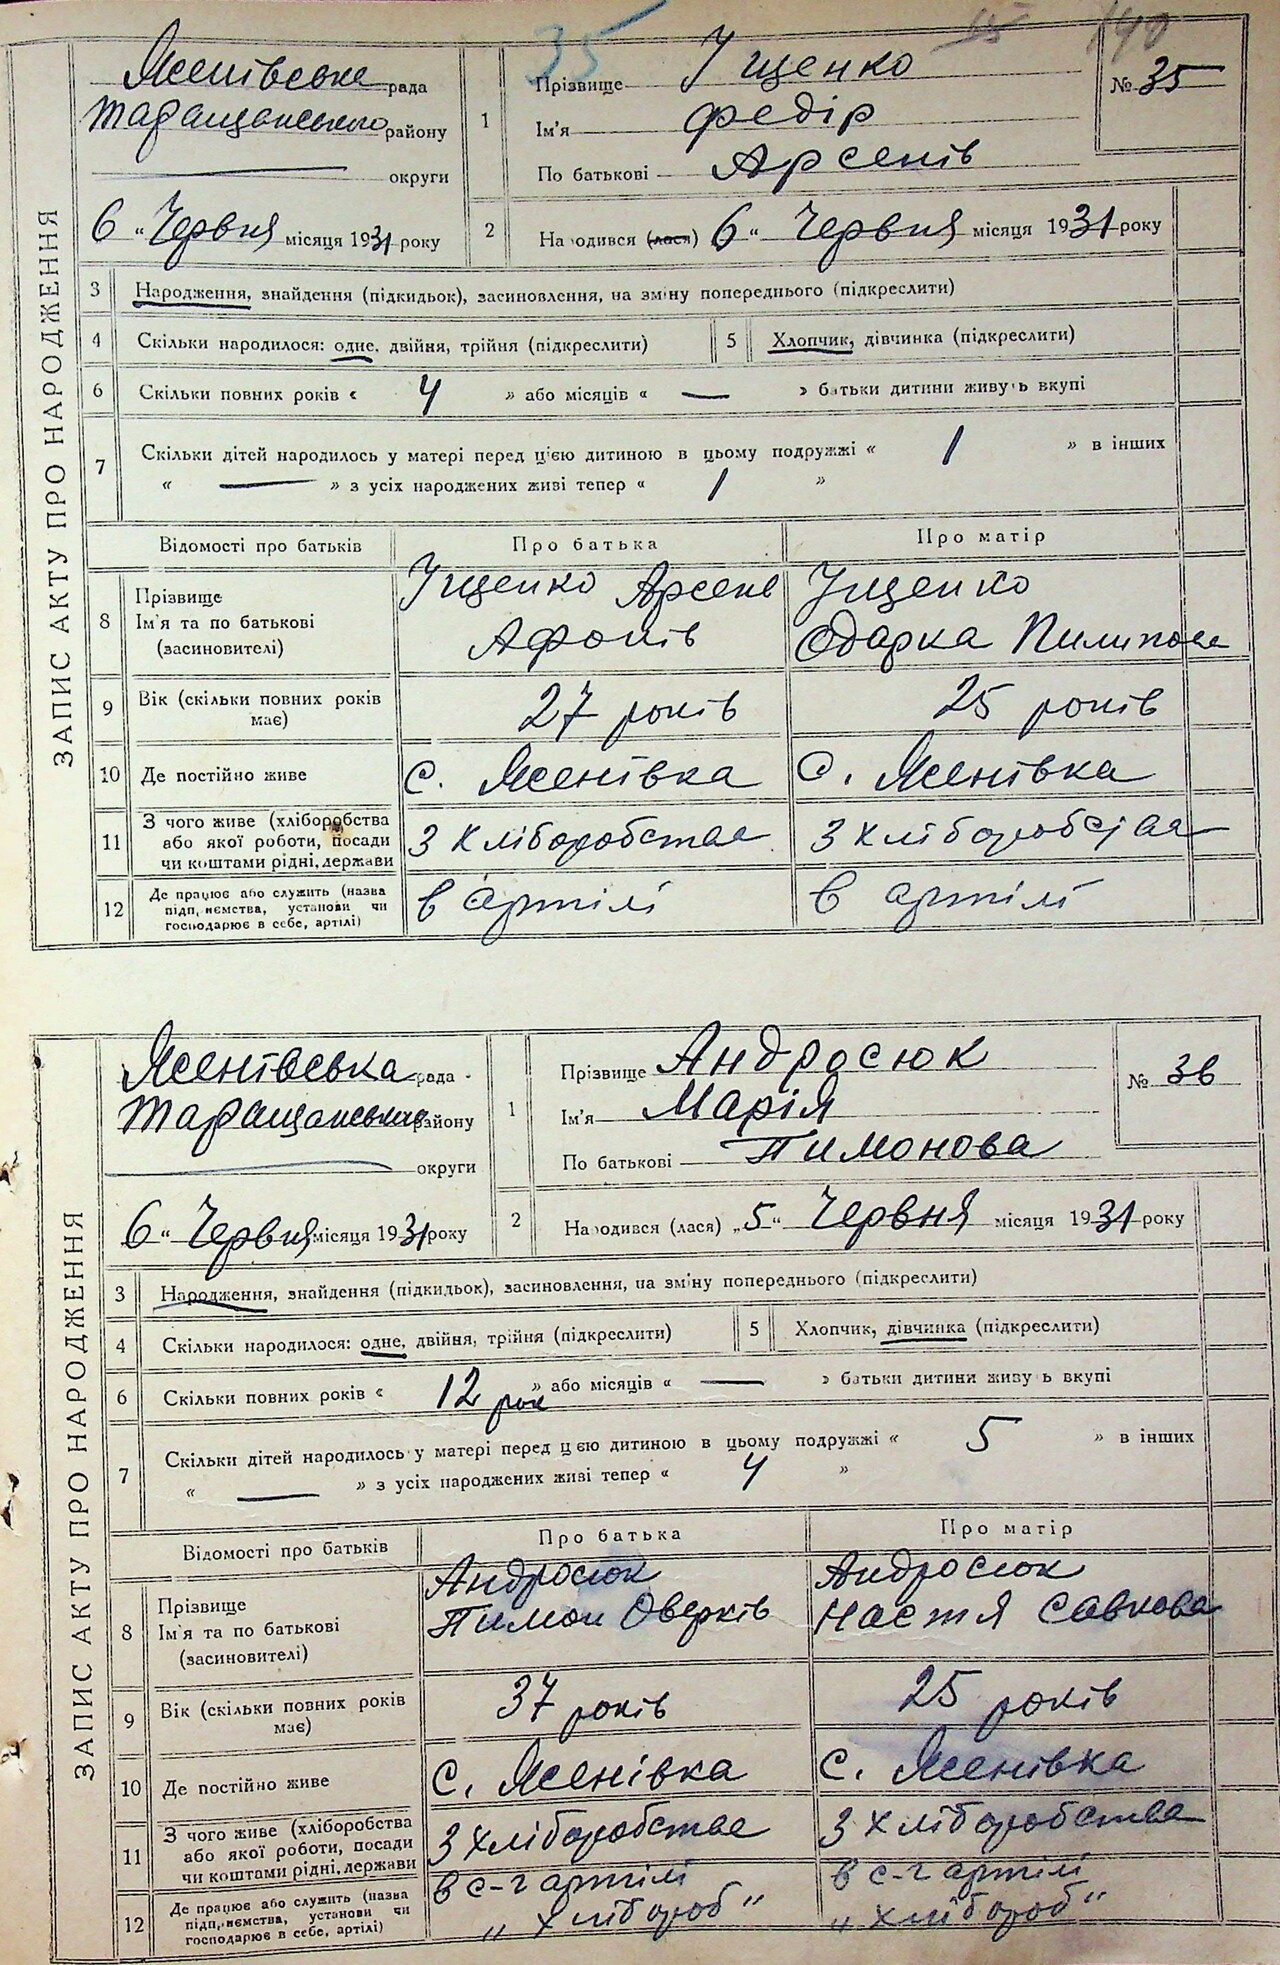 35 140
ЗАПИС АКТУ ПРО НАРОДЖЕННЯ
Ясенівська рада
Таращанського району
округи
6 " Червня місяця 1931 року
1
Прізвище Іщенко
Ім'я Федір
По батькові Арсенів
№ 35
2
Народився (лася) 6 " Червня місяця 1931 року
3 Народження, знайдення (підкидьок), засиновлення, на зміну попереднього (підкреслити)
4 Скільки народилося: одне, двійня, трійня (підкреслити) 5 Хлопчик, дівчинка (підкреслити)
6 Скільки повних років « 4 » або місяців « — » батьки дитини живуть вкупі
7 Скільки дітей народилось у матері перед цією дитиною в цьому подружжі « 1 » в інших
« — » з усіх народжених живі тепер « 1 »
Відомості про батьків Про батька Про матір
8 Прізвище Ім'я та по батькові (засиновителі)
Іщенко Арсень Афонів
Іщенко Одарка Пилипова
9 Вік (скільки повних років має) 27 років 25 років
10 Де постійно живе с. Ясенівка с. Ясенівка
11 З чого живе (хліборобства або якої роботи, посади чи коштами рідні, держави
З хліборобства З хліборобства
12 Де працює або служить (назва підприємства, установи чи господарює в себе, артілі)
в артілі в артілі
ЗАПИС АКТУ ПРО НАРОДЖЕННЯ
Ясенівська рада
Таращанського району
округи
6 " Червня місяця 1931 року
1
Прізвище Андросюк
Ім'я Марія
По батькові Тимонова
№ 36
2
Народився (лася) „5" Червня місяця 1931 року
3 Народження, знайдення (підкидьок), засиновлення, на зміну попереднього (підкреслити)
4 Скільки народилося: одне, двійня, трійня (підкреслити) 5 Хлопчик, дівчинка (підкреслити)
6 Скільки повних років « 12 рок » або місяців « — » батьки дитини живуть вкупі
7 Скільки дітей народилось у матері перед цією дитиною в цьому подружжі « 5 » в інших
« — » з усіх народжених живі тепер « 4 »
Відомості про батьків Про батька Про матір
8 Прізвище Ім'я та по батькові (засиновителі)
Андросюк Тимон Оверків
Андросюк Настя Савкова
9 Вік (скільки повних років має) 37 років 25 років
10 Де постійно живе с. Ясенівка с. Ясенівка
11 З чого живе (хліборобства або якої роботи, посади чи коштами рідні, держави
З хліборобства З хліборобства
12 Де працює або служить (назва підприємства, установи чи господарює в себе, артілі)
в с-г артілі „Хлібороб" в с-г артілі „Хлібороб"